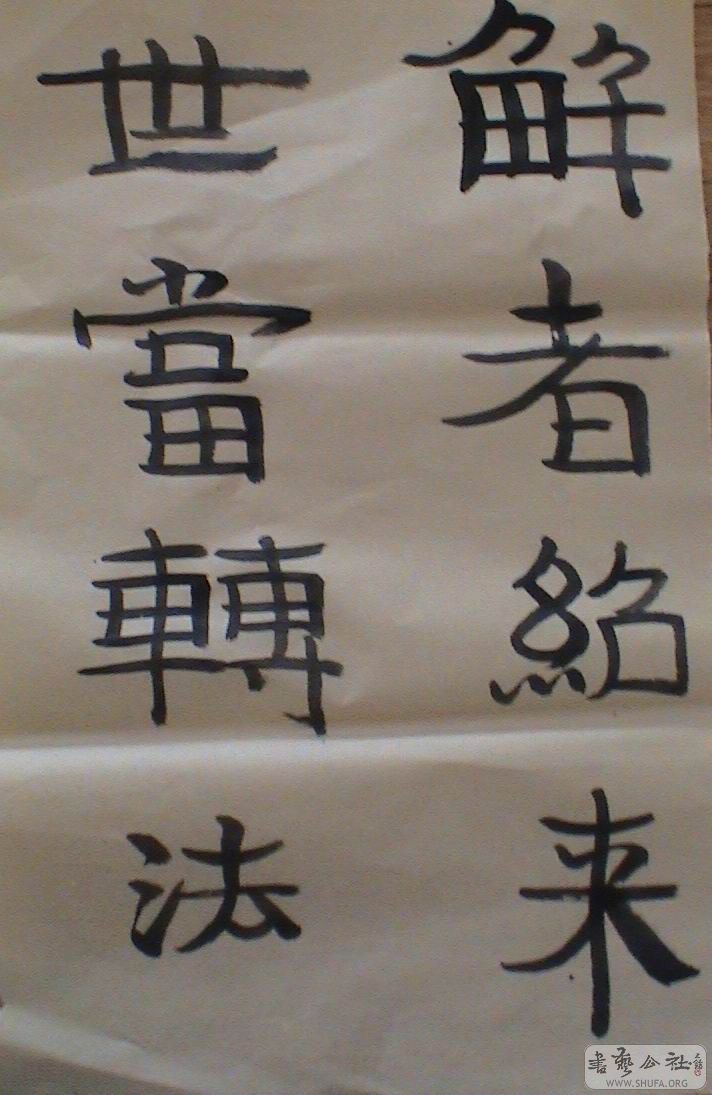 解者紹来
世當轉法
書藝公社
WWW.SHUFA.ORG